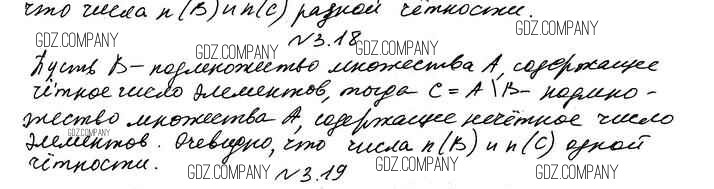 что числа n(B) и n(C) разной чётности.
GDZ.COMPANY GDZ.COMPANY GDZ.COMPANY
№3.18
Пусть B – подмножество множества A, содержащее
чётное число элементов, тогда C = A \ B – подмно-
GDZ.COMPANY GDZ.COMPANY GDZ.COMPANY
жество множества A, содержащее нечётное число
GDZ.COMPANY
элементов. Очевидно, что числа n(B) и n(C) одной
чётности.
GDZ.COMPANY GDZ.COMPANY GDZ.COMPANY
№3.19